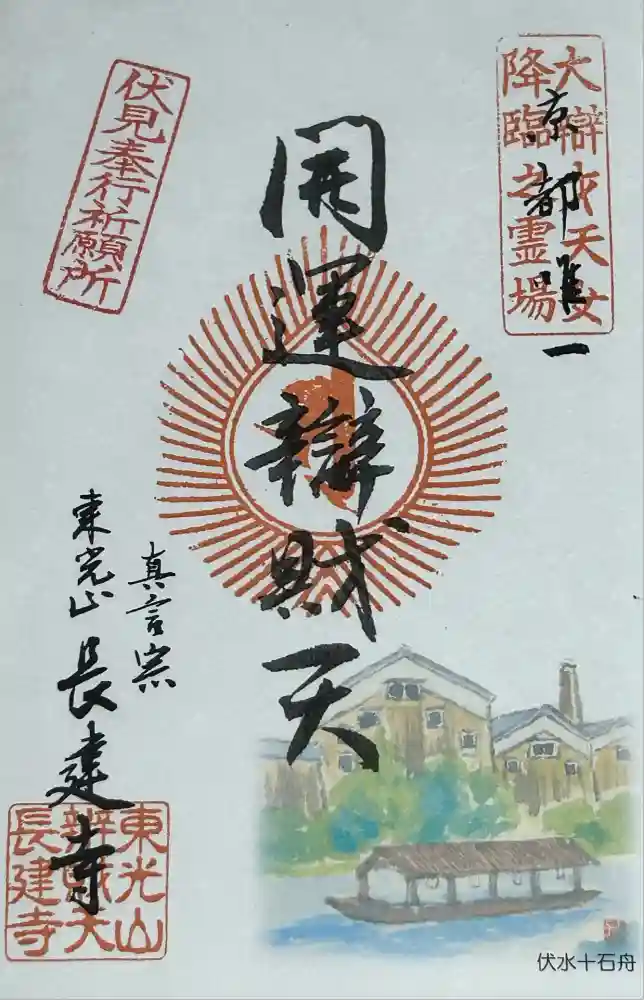 大辯財天女
降臨之霊場
京都唯一
開運辯財天
伏見奉行祈願所
真言宗
東光山
長建寺
東光山
辨財天
長建寺
伏水十石舟